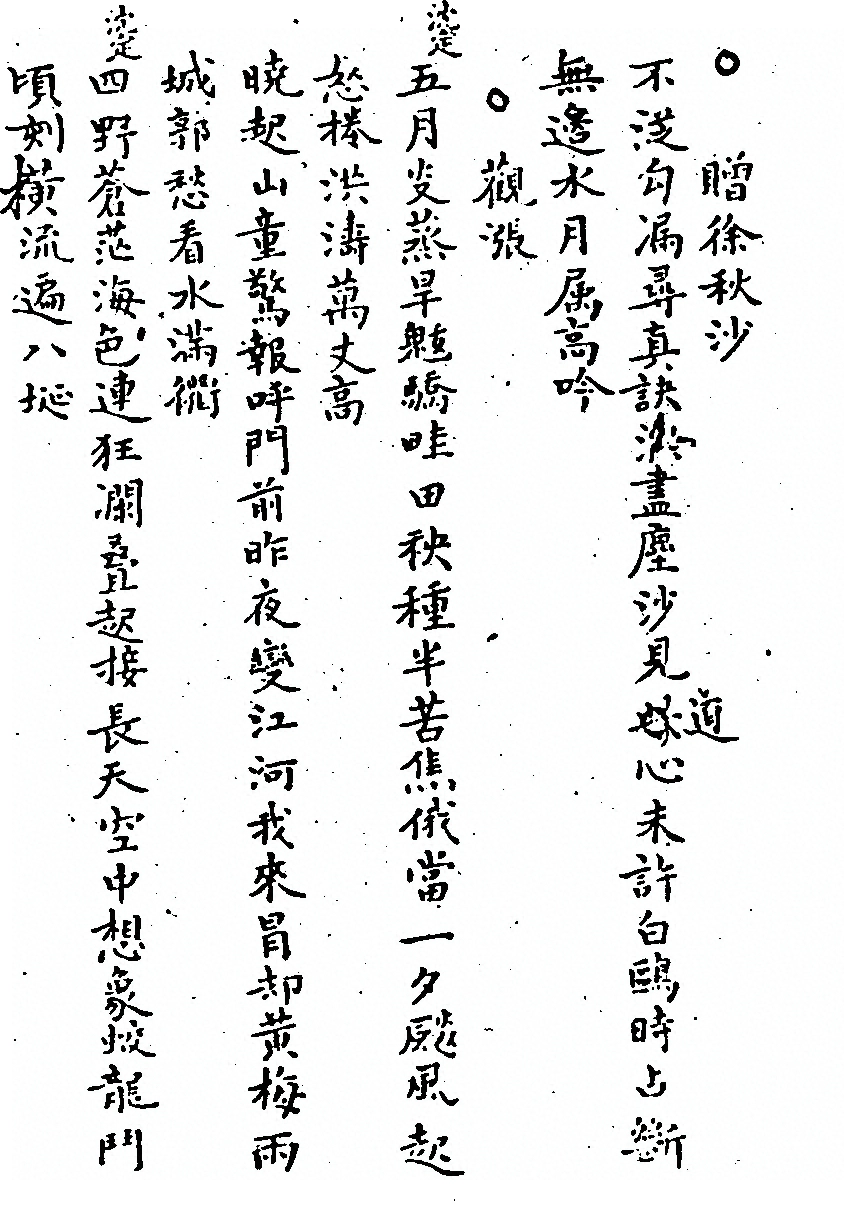 贈徐秋沙
不從勾漏尋真訣淘盡塵沙見道心未許白鷗時占斷
無邊水月屬高吟
觀漲
五月炎蒸旱魃驕畦田秧種半苦焦俄當一夕颶風起
怒捲洪濤萬丈高
曉起山童驚報呼門前昨夜變江河我來冒却黃梅雨
城郭愁看水滿衢
四野蒼茫海色連狂瀾疊起接長天空中想象蛟龍鬥
頃刻橫流遍八埏